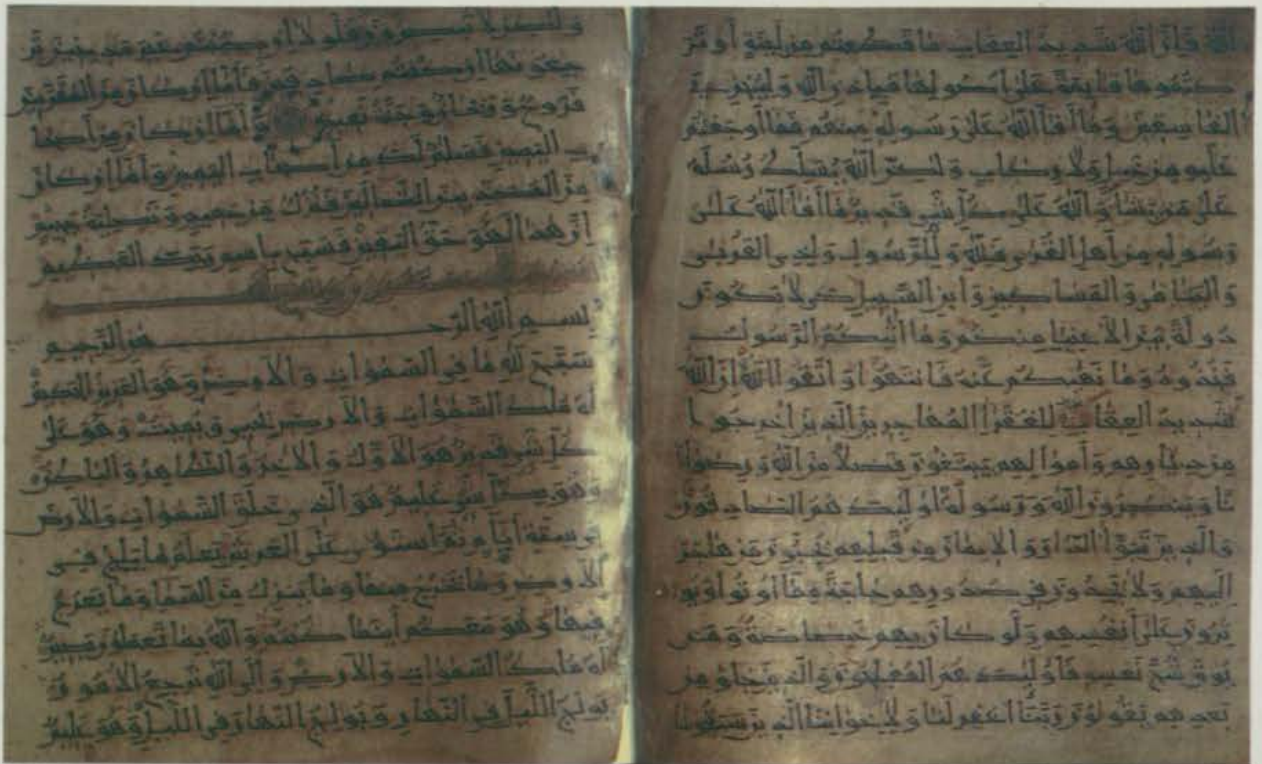 الله فإن الله شديد العقاب ما قطعتم من لينة أو تر
كتموها قايمة على أصولها فبإذن الله وليخزي
الفاسقين وما أفا الله على رسوله منهم فما أوجفتم
عليه من خيل ولا ركاب ولكن الله يسلط رسله
على من يشا والله على كل شي قدير ما أفا الله على
رسوله من أهل القرى فلله وللرسول ولذي القربى
واليتامى والمساكين وابن السبيل كي لا تكون
دولة بين الأغنيا منكم وما آتيكم الرسول
فخذوه وما نهيكم عنه فانتهوا واتقوا الله إن الله
شديد العقاب للفقرا المهاجرين الذين أخرجوا
من ديارهم وأموالهم يبتغون فضلا من الله ورضوا
نا وينصرون الله ورسوله أوليك هم الصادقون
والذين تبوؤا الدار والإيمان من قبلهم يحبون من هاجر
إليهم ولا يجدون في صدورهم حاجة مما أوتوا ويو
ثرون على أنفسهم ولو كان بهم خصاصة ومن
يوق شح نفسه فأوليك هم المفلحون والذين جاؤ من
بعدهم يقولون ربنا اغفر لنا ولإخواننا الذين سبقونا
ولكن لا تبصرون فلولا إن كنتم غير مدينين تر
جعونها إن كنتم صادقين فأما إن كان من المقربين
فروح وريحان وجنة نعيم وأما إن كان من أصحا
ب اليمين فسلم لك من أصحاب اليمين وأما إن كان
من المكذبين الضالين فنزل من حميم وتصلية جحيم
إن هذا لهو حق اليقين فسبح باسم ربك العظيم
بسم الله الرحمن الرحيم
سبح لله ما في السموات والأرض وهو العزيز الحكيم
له ملك السموات والأرض يحيي ويميت وهو على
كل شي قدير هو الأول والآخر والظاهر والباطن
وهو بكل شي عليم هو الذي خلق السموات والأرض
في ستة أيام ثم استوى على العرش يعلم ما يلج في
الأرض وما يخرج منها وما ينزل من السما وما يعرج
فيها وهو معكم أينما كنتم والله بما تعملون بصير
له ملك السموات والأرض وإلى الله ترجع الأمور
يولج الليل في النهار ويولج النهار في الليل وهو عليم